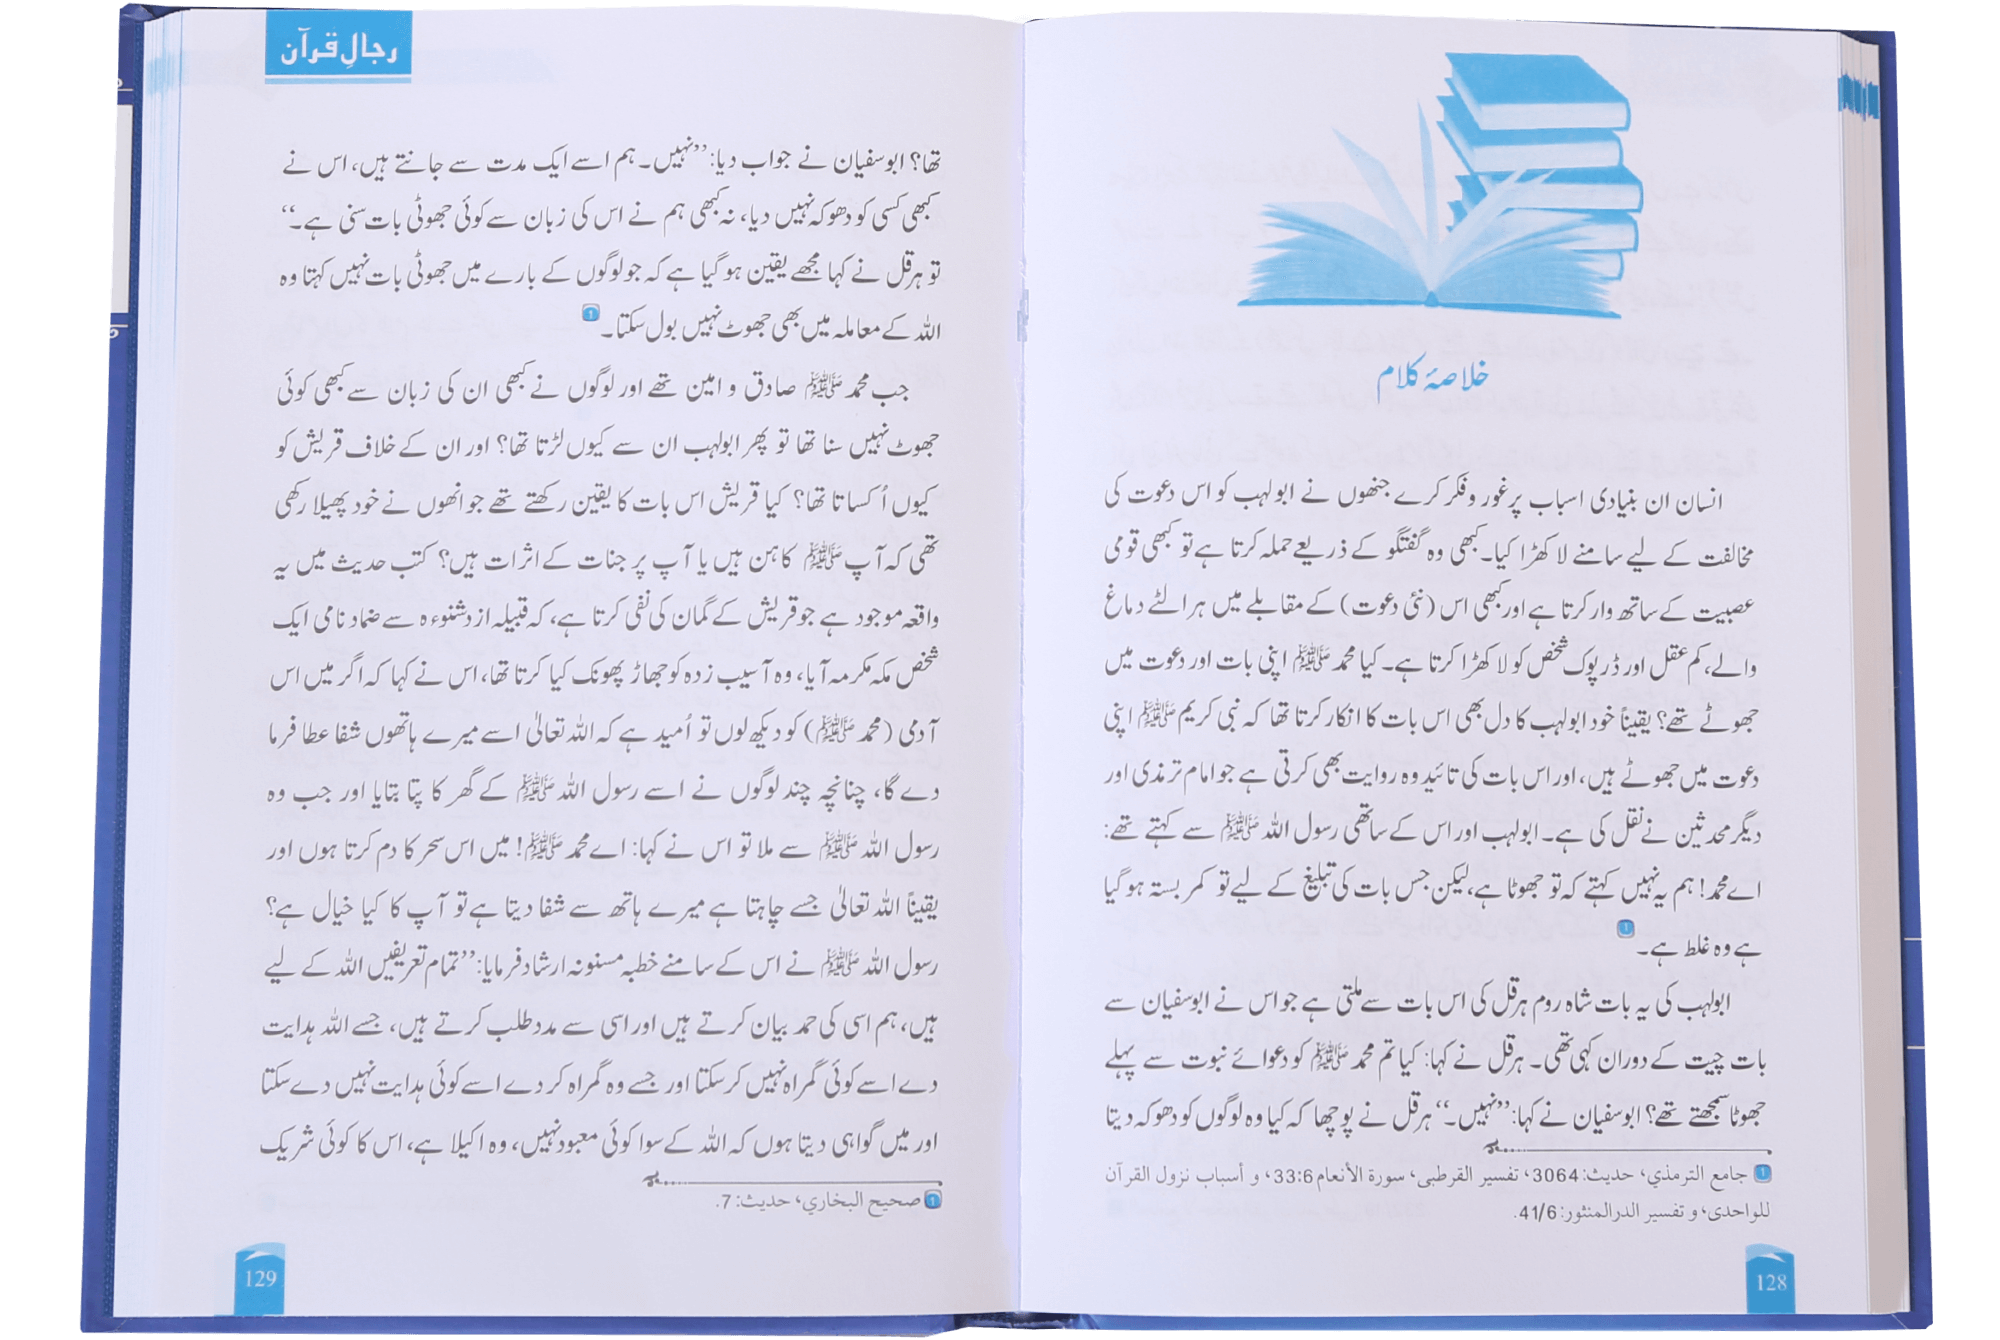 خلاصۂ کلام
انسان ان بنیادی اسباب پر غور و فکر کرے جنھوں نے ابولہب کو اس دعوت کی
مخالفت کے لیے سامنے لا کھڑا کیا۔ کبھی وہ گفتگو کے ذریعے حملہ کرتا ہے تو کبھی قومی
عصبیت کے ساتھ وار کرتا ہے اور کبھی اس (نئی دعوت) کے مقابلے میں ہر الٹے دماغ
والے، کم عقل اور ڈرپوک شخص کو لا کھڑا کرتا ہے۔ کیا محمد ﷺ اپنی بات اور دعوت میں
جھوٹے تھے؟ یقیناً خود ابولہب کا دل بھی اس بات کا انکار کرتا تھا کہ نبی کریم ﷺ اپنی
دعوت میں جھوٹے ہیں، اور اس بات کی تائید وہ روایت بھی کرتی ہے جو امام ترمذی اور
دیگر محدثین نے نقل کی ہے۔ ابولہب اور اس کے ساتھی رسول اللہ ﷺ سے کہتے تھے:
اے محمد! ہم یہ نہیں کہتے کہ تو جھوٹا ہے، لیکن جس بات کی تبلیغ کے لیے تو کمر بستہ ہو گیا
ہے وہ غلط ہے۔ 1
ابولہب کی یہ بات شاہ روم ہرقل کی اس بات سے ملتی ہے جو اس نے ابوسفیان سے
بات چیت کے دوران کہی تھی۔ ہرقل نے کہا: کیا تم محمد ﷺ کو دعوائے نبوت سے پہلے
جھوٹا سمجھتے تھے؟ ابوسفیان نے کہا: ”نہیں۔“ ہرقل نے پوچھا کہ کیا وہ لوگوں کو دھوکہ دیتا
1 جامع الترمذي، حديث: 3064، تفسير القرطبى، سورة الأنعام 33:6، و أسباب نزول القرآن
للواحدى، و تفسير الدرالمنثور: 41/6.
128
رجالِ قرآن
تھا؟ ابوسفیان نے جواب دیا: ”نہیں۔ ہم اسے ایک مدت سے جانتے ہیں، اس نے
کبھی کسی کو دھوکہ نہیں دیا، نہ کبھی ہم نے اس کی زبان سے کوئی جھوٹی بات سنی ہے۔“
تو ہرقل نے کہا مجھے یقین ہو گیا ہے کہ جو لوگوں کے بارے میں جھوٹی بات نہیں کہتا وہ
اللہ کے معاملہ میں بھی جھوٹ نہیں بول سکتا۔ 1
جب محمد ﷺ صادق و امین تھے اور لوگوں نے کبھی ان کی زبان سے کبھی کوئی
جھوٹ نہیں سنا تھا تو پھر ابولہب ان سے کیوں لڑتا تھا؟ اور ان کے خلاف قریش کو
کیوں اُکساتا تھا؟ کیا قریش اس بات کا یقین رکھتے تھے جو انھوں نے خود پھیلا رکھی
تھی کہ آپ ﷺ کاہن ہیں یا آپ پر جنات کے اثرات ہیں؟ کتب حدیث میں یہ
واقعہ موجود ہے جو قریش کے گمان کی نفی کرتا ہے، کہ قبیلہ ازد شنوءہ سے ضماد نامی ایک
شخص مکہ مکرمہ آیا، وہ آسیب زدہ کو جھاڑ پھونک کیا کرتا تھا، اس نے کہا کہ اگر میں اس
آدمی (محمد ﷺ) کو دیکھ لوں تو اُمید ہے کہ اللہ تعالیٰ اسے میرے ہاتھوں شفا عطا فرما
دے گا، چنانچہ چند لوگوں نے اسے رسول اللہ ﷺ کے گھر کا پتا بتایا اور جب وہ
رسول اللہ ﷺ سے ملا تو اس نے کہا: اے محمد ﷺ! میں اس سحر کا دم کرتا ہوں اور
یقیناً اللہ تعالیٰ جسے چاہتا ہے میرے ہاتھ سے شفا دیتا ہے تو آپ کا کیا خیال ہے؟
رسول اللہ ﷺ نے اس کے سامنے خطبہ مسنونہ ارشاد فرمایا: ”تمام تعریفیں اللہ کے لیے
ہیں، ہم اسی کی حمد بیان کرتے ہیں اور اسی سے مدد طلب کرتے ہیں، جسے اللہ ہدایت
دے اسے کوئی گمراہ نہیں کر سکتا اور جسے وہ گمراہ کر دے اسے کوئی ہدایت نہیں دے سکتا
اور میں گواہی دیتا ہوں کہ اللہ کے سوا کوئی معبود نہیں، وہ اکیلا ہے، اس کا کوئی شریک
1 صحيح البخاري، حديث: 7.
129